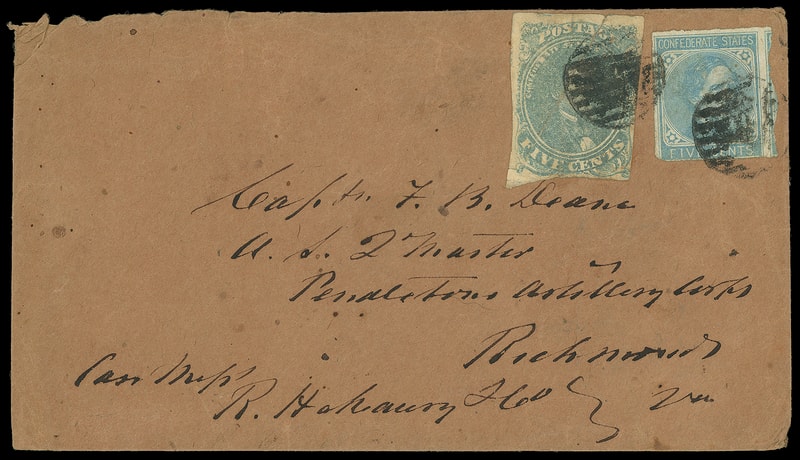 POSTA
FIVE CENTS
CONFEDERATE STATES
FIVE CENTS
Capt. F. B. Deane
A. S. Q Master
Pendletons Artillery Corps
Richmond
Va
Care Messrs
R. H